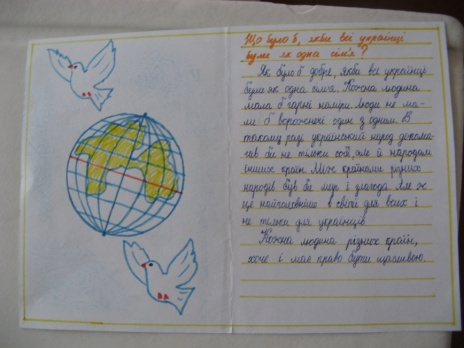 Що було б, якби всі українці
були як одна сім'я?
Як було б добре, якби всі українці
були як одна сім'я. Кожна людина
мала б гарні наміри. Люди не ма-
ли б ворожнечі один з одним. В
такому разі український народ допома-
гав би не тільки собі, але й народам
інших країн. Між країнами різних
народів був би мир і злагода. Але ж
це найголовніше в світі для всіх і
не тільки для українців.
Кожна людина різних країн,
хоче і має право бути щасливою.